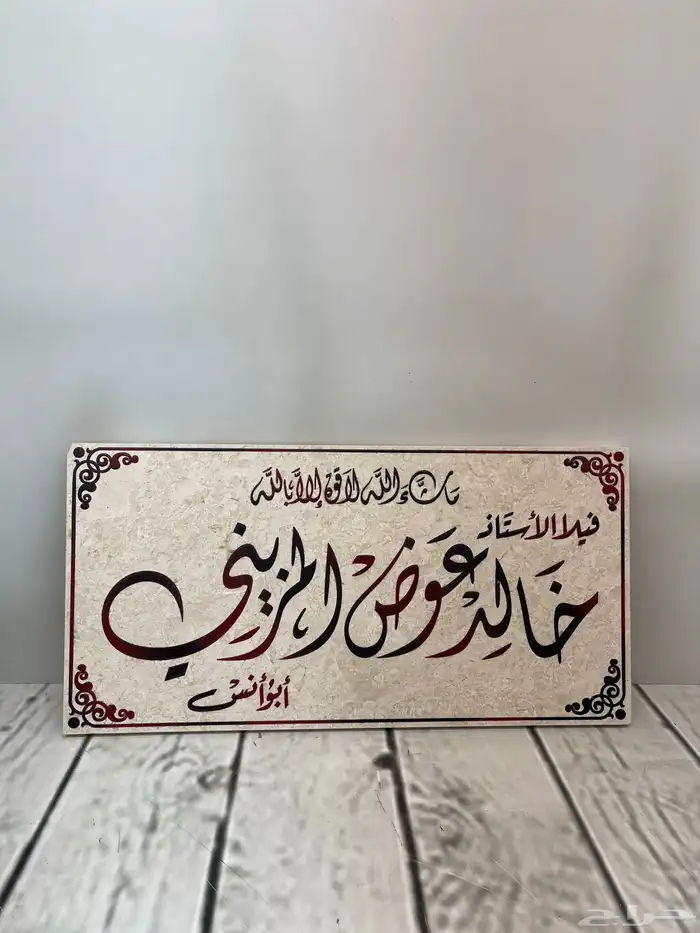 ما شاء الله لا قوة إلا بالله
فيلا الأستاذ
خالد عوض المزيني
أبو أنس
حراج